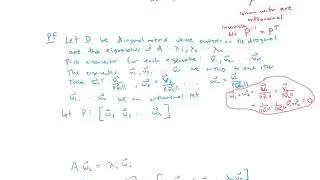 column vector are
orthonormal
invertible P⁻¹ = Pᵀ
Pf Let D be diagonal matrix whose entries on the diagonal
are the eigenvalues of A λ₁, λ₂, ... λₙ
Pick eigenvector for each eigenvalue v⃗₁, v⃗₂, ... v⃗ₙ
The eigenvectors v⃗₁, v⃗₂, ... v⃗ₙ are orthog to each other
Take w⃗₁ = v⃗₁/‖v⃗₁‖, w⃗₂ = v⃗₂/‖v⃗₂‖ ... w⃗ₙ = v⃗ₙ/‖v⃗ₙ‖
w⃗₁ ... w⃗ₙ be an orthonormal set
w⃗₁ · w⃗₂ = v⃗₁/‖v⃗₁‖ · v⃗₂/‖v⃗₂‖
= 1/‖v⃗₁‖ 1/‖v⃗₂‖ v⃗₁·v⃗₂ = 0
Let P = [w⃗₁ w⃗₂ ... w⃗ₙ]
A w⃗₁ = λ₁ w⃗₁